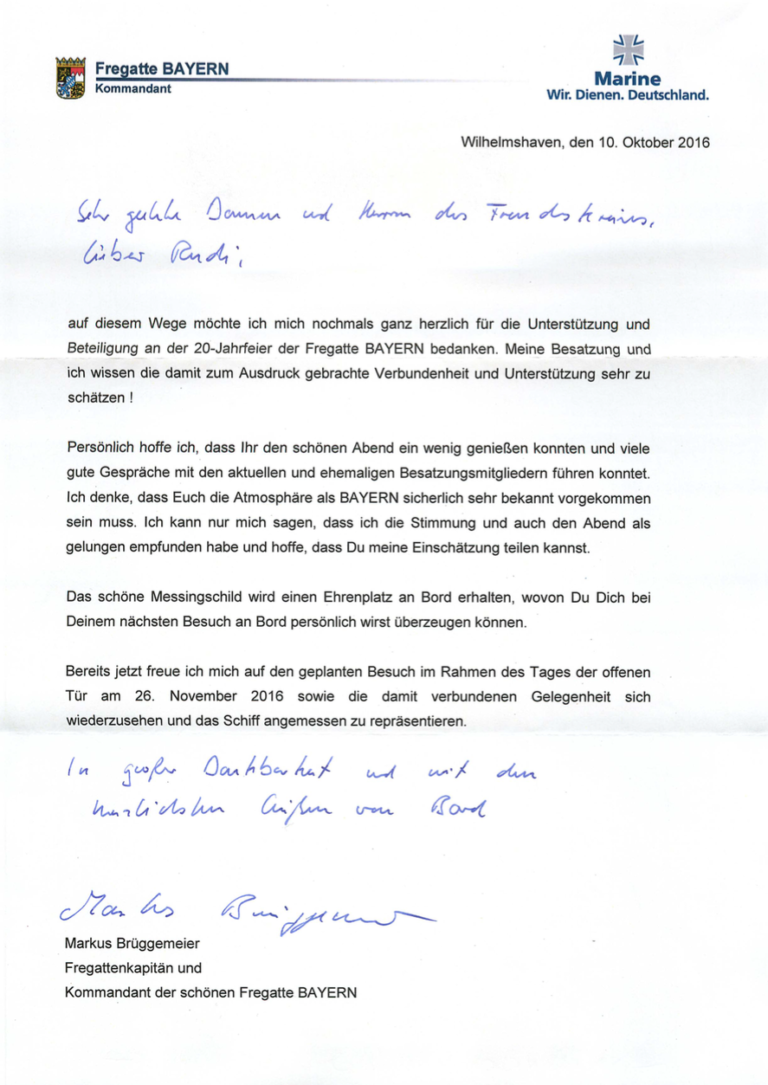 Fregatte BAYERN
Kommandant
Marine
Wir. Dienen. Deutschland.
Wilhelmshaven, den 10. Oktober 2016
Sehr geehrte Damen und Herren des Freundeskreises,
lieber Rudi,
auf diesem Wege möchte ich mich nochmals ganz herzlich für die Unterstützung und
Beteiligung an der 20-Jahrfeier der Fregatte BAYERN bedanken. Meine Besatzung und
ich wissen die damit zum Ausdruck gebrachte Verbundenheit und Unterstützung sehr zu
schätzen !
Persönlich hoffe ich, dass Ihr den schönen Abend ein wenig genießen konnten und viele
gute Gespräche mit den aktuellen und ehemaligen Besatzungsmitgliedern führen konntet.
Ich denke, dass Euch die Atmosphäre als BAYERN sicherlich sehr bekannt vorgekommen
sein muss. Ich kann nur mich sagen, dass ich die Stimmung und auch den Abend als
gelungen empfunden habe und hoffe, dass Du meine Einschätzung teilen kannst.
Das schöne Messingschild wird einen Ehrenplatz an Bord erhalten, wovon Du Dich bei
Deinem nächsten Besuch an Bord persönlich wirst überzeugen können.
Bereits jetzt freue ich mich auf den geplanten Besuch im Rahmen des Tages der offenen
Tür am 26. November 2016 sowie die damit verbundenen Gelegenheit sich
wiederzusehen und das Schiff angemessen zu repräsentieren.
In großer Dankbarkeit und mit den
herzlichsten Grüßen von Bord
Markus Brüggemeier
Markus Brüggemeier
Fregattenkapitän und
Kommandant der schönen Fregatte BAYERN